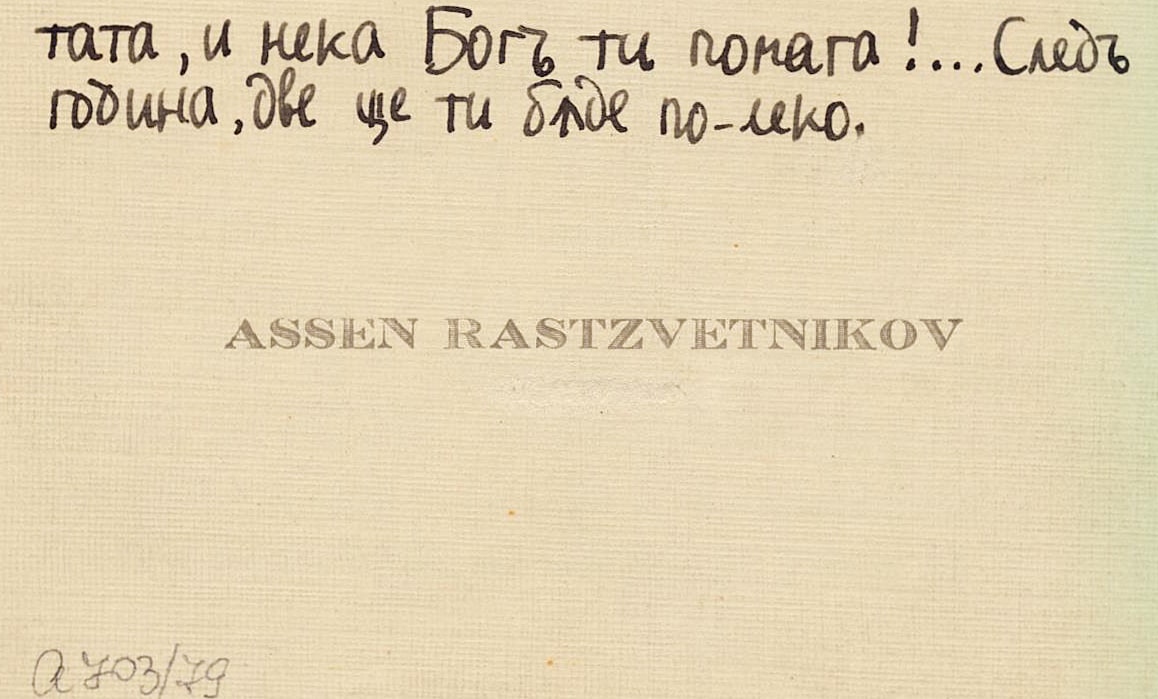 тата, и нека Богъ ти помага!.... Следъ
година, две ще ти бѫде по-леко.
ASSEN RASTZVETNIKOV
А 703/79